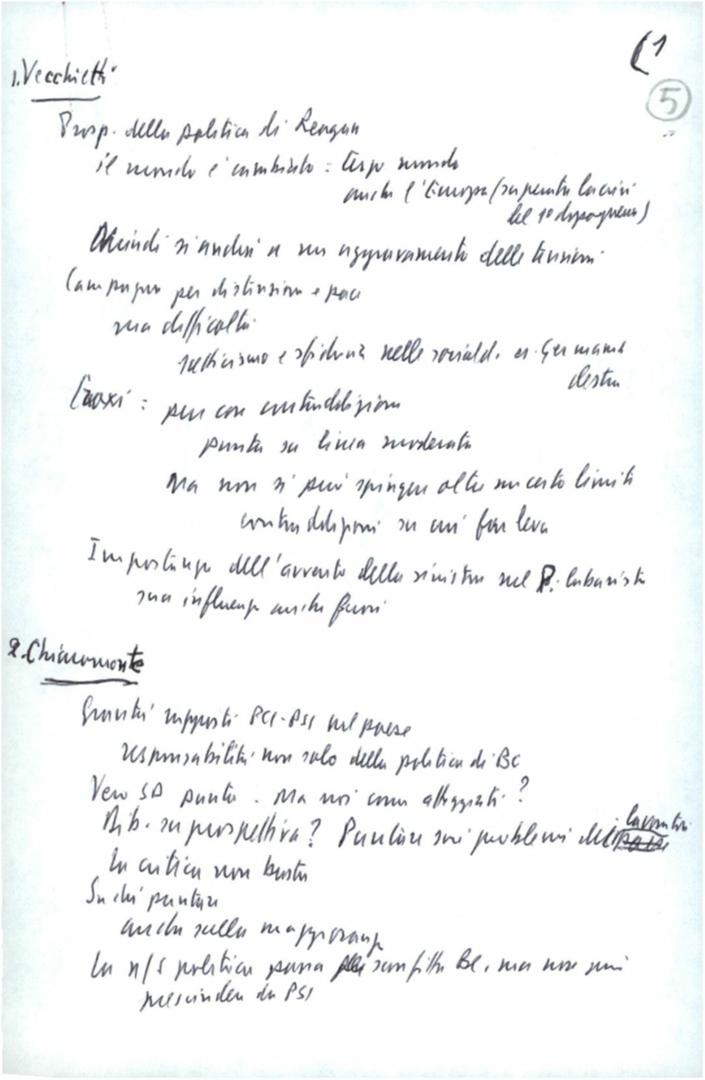 (1
5
1. Vecchietti
Prosp. della politica di Reagan
il mondo è cambiato = terzo mondo
anche l'Europa (superata la crisi
del 1° dopoguerra)
Quindi si andrà a un aggravamento delle tensioni
Campagna per distensione e pace
ma difficoltà
scetticismo e sfiducia nelle sociald. es. Germania
destra
Craxi = pur con contraddizioni
punta su linea moderata
Ma non si può spingere oltre un certo limite
contraddizioni su cui far leva
Importanza dell'avvento della sinistra nel P. laburista
sua influenza anche fuori
2. Chiaromonte
Gravità rapporti PCI-PSI nel paese
responsabilità non solo della politica di BC
Vero SD punta. Ma noi come atteggiarci?
Rib. su prospettiva? Puntare sui problemi dei lavoratori
La critica non basta
Su chi puntare
anche sulla maggioranza
La n/s politica passa sconfitta BC, ma non può
prescindere da PSI